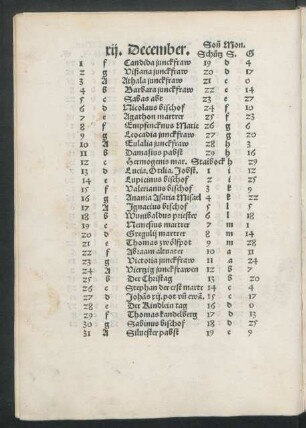 Soñ Mon.
xij. December. Schütz S. G
1 f Candida junckfraw 19 d 4
2 g Vistana junckfraw 20 d 17
3 A Athala junckfraw 21 e 0
4 b Barbara junckfraw 22 e 13
5 c Sabas abt 23 e 27
6 d Nicolaus bischof 24 f 10
7 e Agathon martrer 25 f 23
8 f Empfencknus Marie 26 g 6
9 g Leocadia junckfraw 27 g 20
10 A Eulalia junckfraw 28 h 3
11 b Damasius pabst 29 h 16
12 c Hermogenes mar. Staibock h 29
13 d Lucia, Otilia, Jobst. 1 i 12
14 e Lupicinus bischof 2 i 25
15 f Valerianus bischof 3 k 9
16 g Anania Asaria Misael 4 k 22
17 A Ignacius bischof 5 l 5
18 b Wunibaldus priester 6 l 18
19 c Nemesius martrer 7 m 1
20 d martrer 8 m 14
21 e Thomas zwölfpot 9 m 28
22 f Abraam altvater 10 n 11
23 g Victoria junckfraw 11 a 24
24 A Viertzig junckfrawen 12 b 7
25 b Der Christag 13 b 20
26 c Stephan der erst marte 14 c 4
27 d Johās zij. pot vñ ewā. 15 c 17
28 e Der Kindlein tag 16 d 0
29 f Thomas kandelberg 17 d 13
30 g Sabinus bischof 18 d 25
31 A Silvester pabst 19 e 9